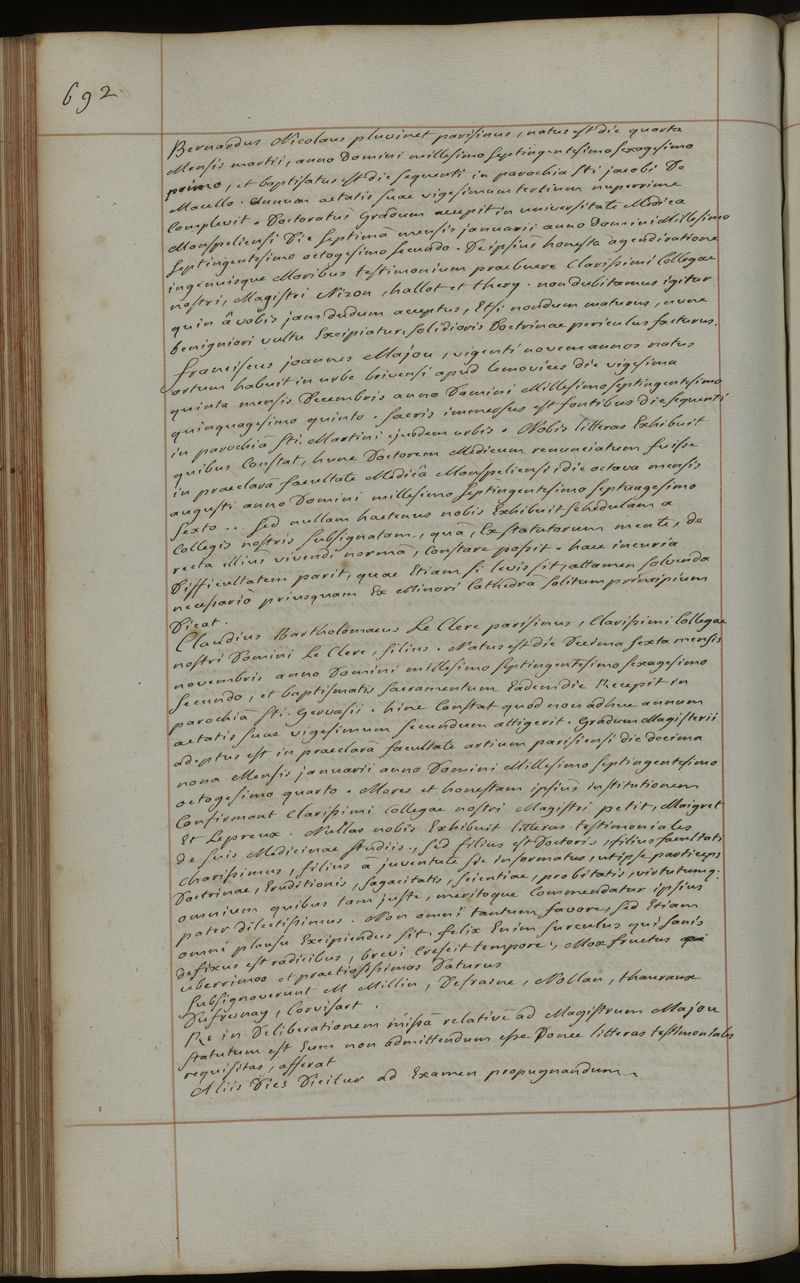 692
Bernardus Nicolaus pluvinet parisinus, natus est die quarta
Mensis martii, anno Domini millesimo septingentesimo sexagesimo
primo, et baptisatus est die sequenti in parochia Sti jacobi De
Macello. annum aetatis suae vigesimum tertium nuperrime
Complevit. Doctoratus Gradum accepit in universitate Medica
Monspeliensi Die septimâ mensis januarii anno Domini Millesimo
Septingentesimo octogesimo secundo. De ipsius honesta agendi ratione
ingenuisque Moribus testimonium praebuere Clarissimi Collegae
nostri, Magistri Nizon, hallot et thery. non dubitamus igitur
quin â vobis jamdudum acceptus, Etsi nondum maturus, nunc
benigniori vultu Excipiatur, solidioris Doctrinae periculus facturus.
franciscus joannes Majou, viginti novem annos natus
ortum habuit in urbe brivensi apud Lemovices die vigesima
quinta mensis Decembris anno Domini Millesimo septingentesimo
quinquagesimo quinto. sacris immersus est fontibus die sequenti
in parochiâ Sti Martini ejusdem urbis. Nobis litteras Exhibuit
quibus Constat, hunc Doctorem Medicum renunciatum fuisse
in praeclarâ facultate Medicâ Monspeliensi, die octava mensis
augusti anno Domini millesimo septingentesimo septuagesimo
sexto... sed nullam hactenus nobis Exhibuit schedulam a
Collegis nostris subsignatam, quâ, Ex statutorum mente, de
recta illius vivendi normâ, Constare possit. haec incuria
Difficultatem parit, quae Etiam si levis sit, attamen solvenda
necessario priusquam Ex Minori Cathedrâ solitum principium
Dicat.
Claudius Bartholomaeus Le Clerc parisinus, Clarissimi Collegae
nostri Domini Le Clerc, filius. Natus est die Decima sexta mensis
novembris anno Domini millesimo septingentesimo sexagesimo
Secundo, et baptismatis sacramentum Eadem die Recepit in
parochiâ Sti Gervasii. hinc Constat quod non adhuc annum
aetatis suae vigesimum secundum attigerit. Gradum Magisterii
adeptus est in praeclarâ facultate artium parisiensi die decima
nona Mensis januarii anno Domini Millesimo septingentesimo
octogesimo quarto. Mores et honestam ipsius institutionem
Confirmant Clarissimi Collegae nostri Magistri petit, Maigret
Et Lepreux. Nullas nobis Exhibuit litteras testimoniales
de suis Medicinae studiis, sed filius est Doctoris, filius facultati
charissimus, filius â juventute sic informatus, ut ipse particeps
Doctrinae, Eruditionis, sagacitatis, scientiae, probitatis, virtutumq:
omnium quibus tam juste, meritoque Commendatur ipsius
pater dilectissimus. Non omni tantum favore, sed Etiam
omni plausu Excipiendus sit. felix Enim surculus qui sanis
defixus est radicibus, brevi Crescit tempore, Mox fructus
uberrimos et praetiosissimos Daturus
Subsignaverunt M Millin, Defrasne, Nollan, thauraux
Dufresnay, Corvisart.
Re in Deliberationem missâ relativè ad Magistrum Majou
statutum est Eum non admittendum esse Donec litteras testimoniales
requisitas, afferat
Aliis Dies Dicitur ad Examen propugnandum